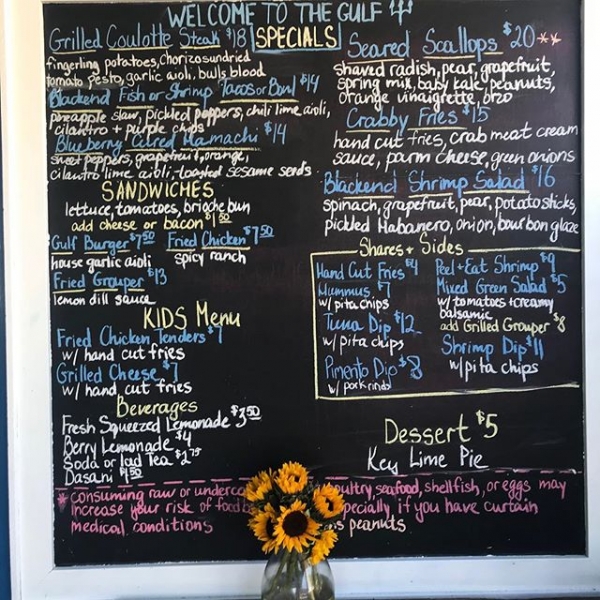 WELCOME TO THE GULF
SPECIALS
Grilled Coulotte Steak $18
fingerling potatoes, chorizo sundried
tomato pesto, garlic aioli, bulls blood
Blackend Fish or Shrimp Tacos or Bowl $14
pineapple slaw, pickled peppers, chili lime aioli,
cilantro + purple chips
Blueberry Cured Hamachi $14
sweet peppers, grapefruit, orange,
cilantro lime aioli, toasted sesame seeds
SANDWICHES
lettuce, tomatoes, brioche bun
add cheese or bacon $1.50
Gulf Burger $7.50 Fried Chicken $7.50
house garlic aioli spicy ranch
Fried Grouper $13
lemon dill sauce
KIDS Menu
Fried Chicken Tenders $7
w/ hand cut fries
Grilled Cheese $7
w/ hand cut fries
Beverages
Fresh Squeezed Lemonade $3.50
Berry Lemonade $4
Soda or Iced Tea $2.75
Dasani $1.50
Seared Scallops $20**
shaved radish, pear, grapefruit,
spring mix, baby kale, peanuts,
orange vinaigrette, orzo
Crabby Fries $15
hand cut fries, crab meat cream
sauce, parm cheese, green onions
Blackend Shrimp Salad $16
spinach, grapefruit, pear, potato sticks,
pickled Habanero, onion, bourbon glaze
Shares + Sides
Hand Cut Fries $4
Hummus $7
w/ pita chips
Tuna Dip $12
w/ pita chips
Pimento Dip $8
w/ pork rinds
Peel + Eat Shrimp $9
Mixed Green Salad $5
w/ tomatoes + creamy
balsamic
add Grilled Grouper $8
Shrimp Dip $11
w/ pita chips
Dessert $5
Key Lime Pie
*consuming raw or underco poultry, seafood, shellfish, or eggs may
increase your risk of food b pecially, if you have curtain
medical conditions ns peanuts